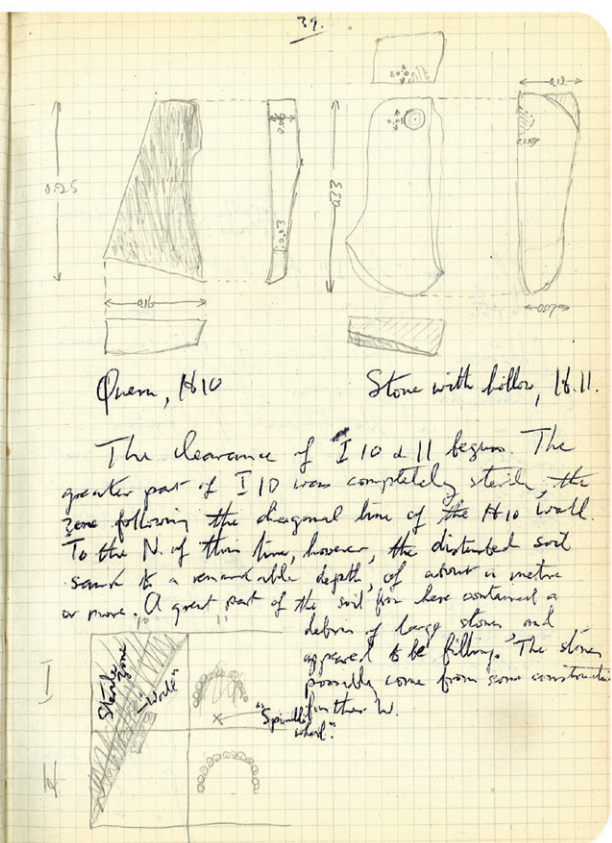 39.
0.03
0.12
0.25
0.33
0.03
0.16
0.07
Quern, H10
Stone with hollow, H.11.
The clearance of I 10 & 11 begun. The
greater part of I 10 was completely sterile, the
zone following the diagonal line of the H10 wall.
To the N. of this line, however, the disturbed soil
sank to a remarkable depth, of about a metre
or more. A great part of the soil from here contained a
debris of large stones and
appeared to be filling. The stones
possibly come from some construction
further W.
10 11
I
Sterile zone
"Wall"
"Spindle
whorl".